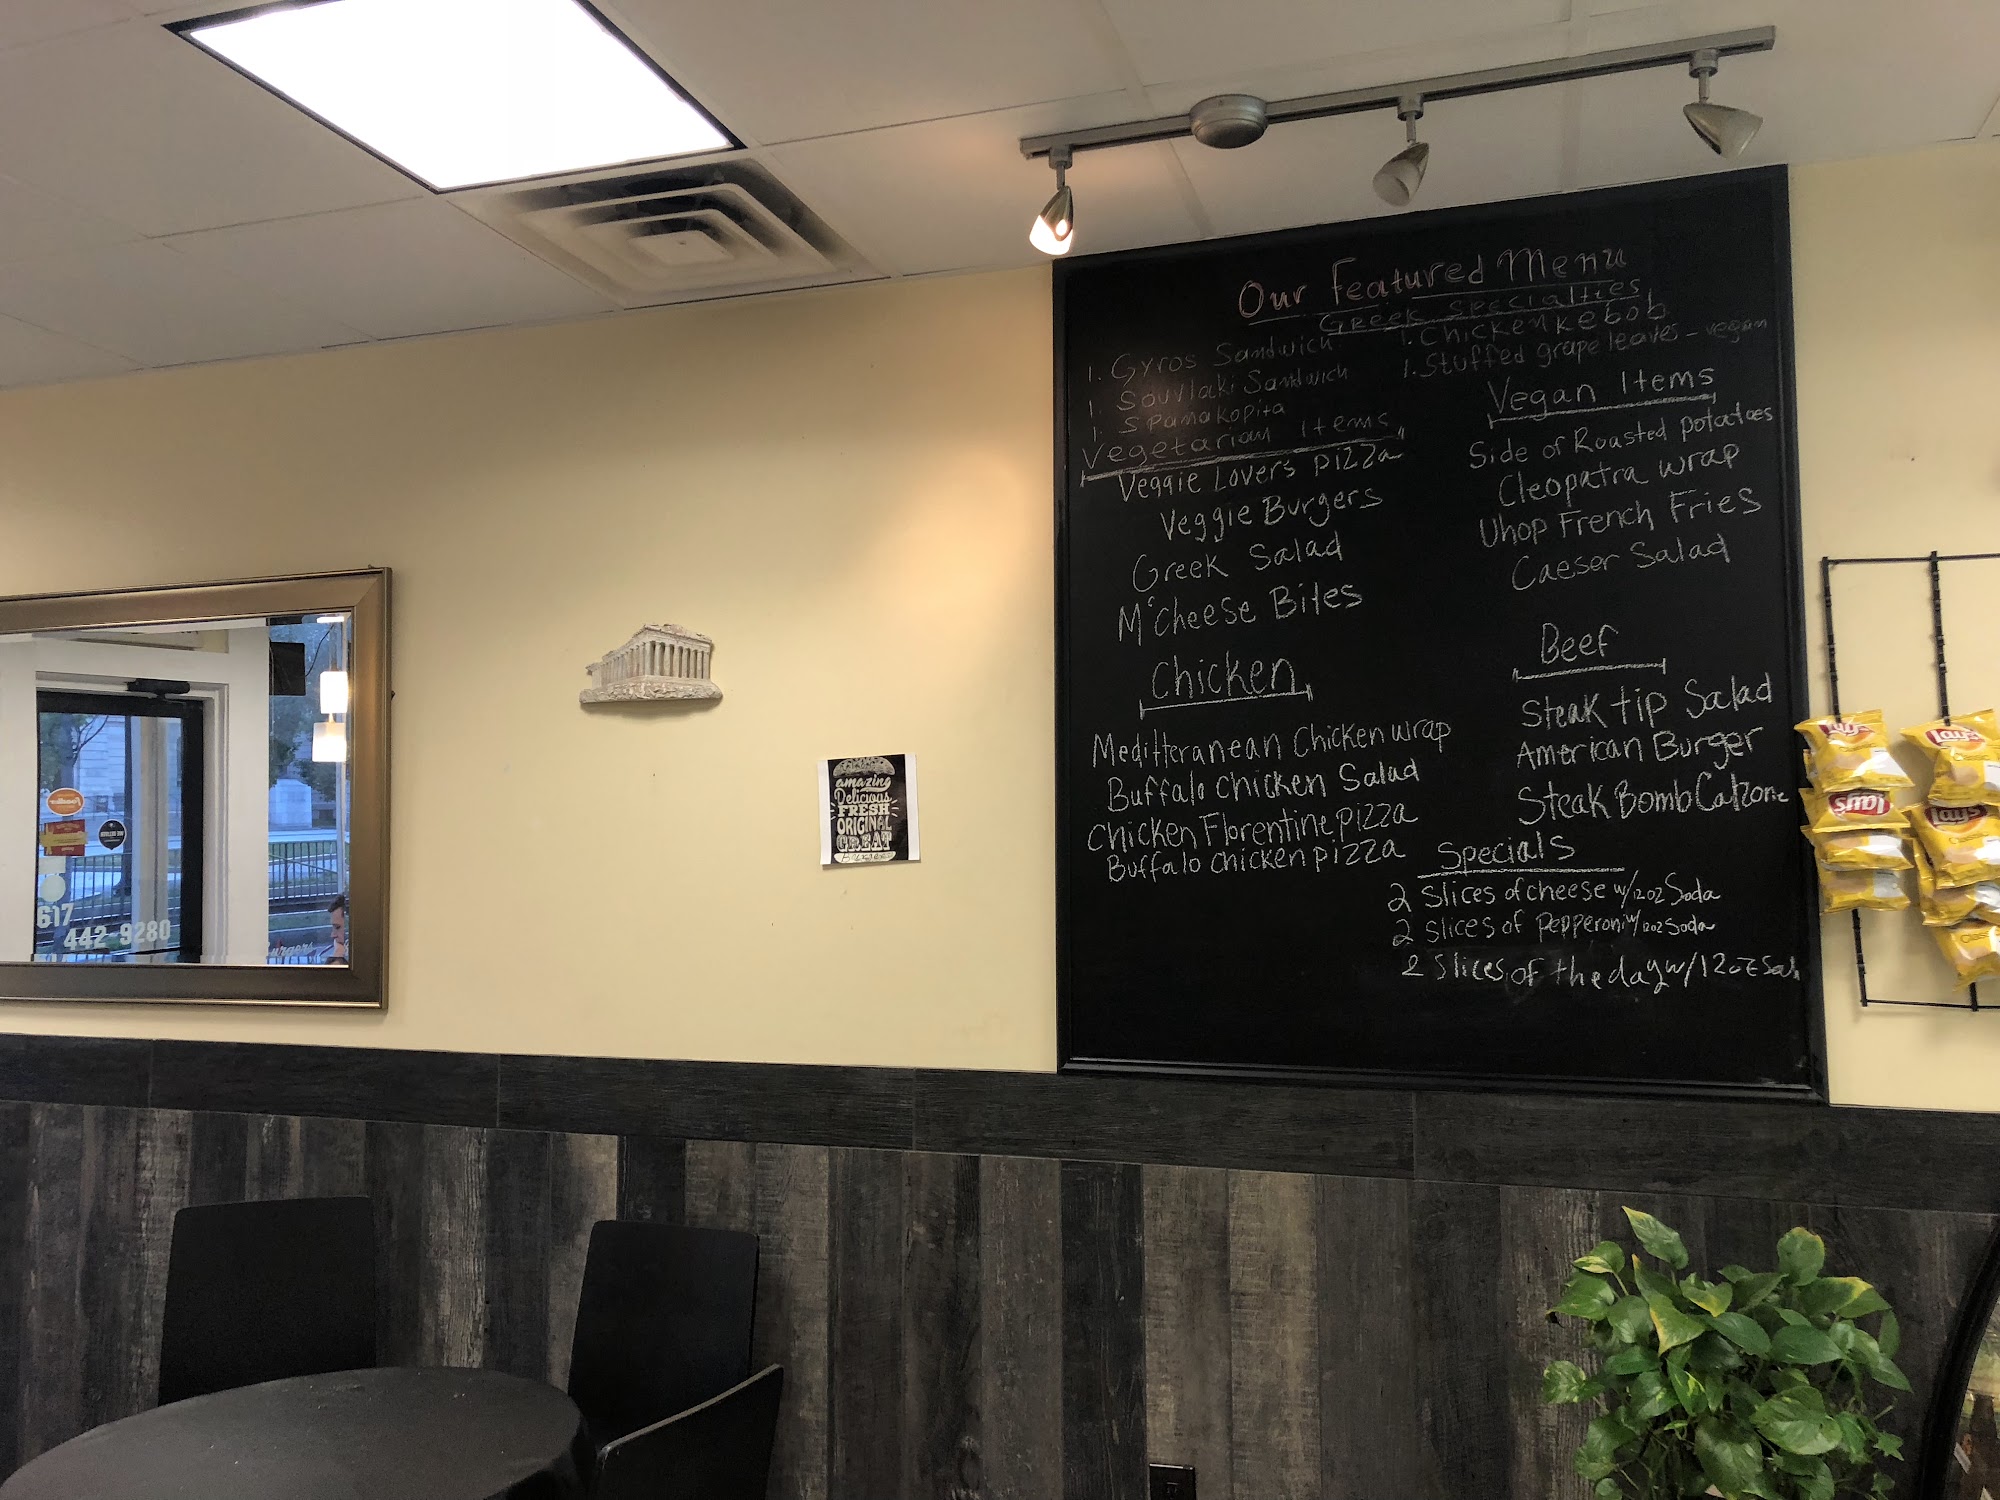 Our Featured Menu
Greek Specialties
1. Gyros Sandwich
1. Souvlaki Sandwich
1. Spanakopita
1. Chicken Kebob
1. Stuffed grape leaves - vegan
Vegetarian Items
Veggie Lover's Pizza
Veggie Burgers
Greek Salad
M'Cheese Bites
Vegan Items
Side of Roasted potatoes
Cleopatra wrap
Uhop French Fries
Caeser Salad
Chicken
Mediterranean Chicken wrap
Buffalo Chicken Salad
Chicken Florentine pizza
Buffalo chicken pizza
Beef
Steak tip Salad
American Burger
Steak Bomb Calzone
Specials
2 Slices of cheese w/12oz Soda
2 Slices of Pepperoni w/12oz Soda
2 Slices of the day w/12oz Soda
amazing
Delicious
FRESH
ORIGINAL
GREAT
Lay's
Lay's
Lay's
Lay's
Classic
617
442-9280